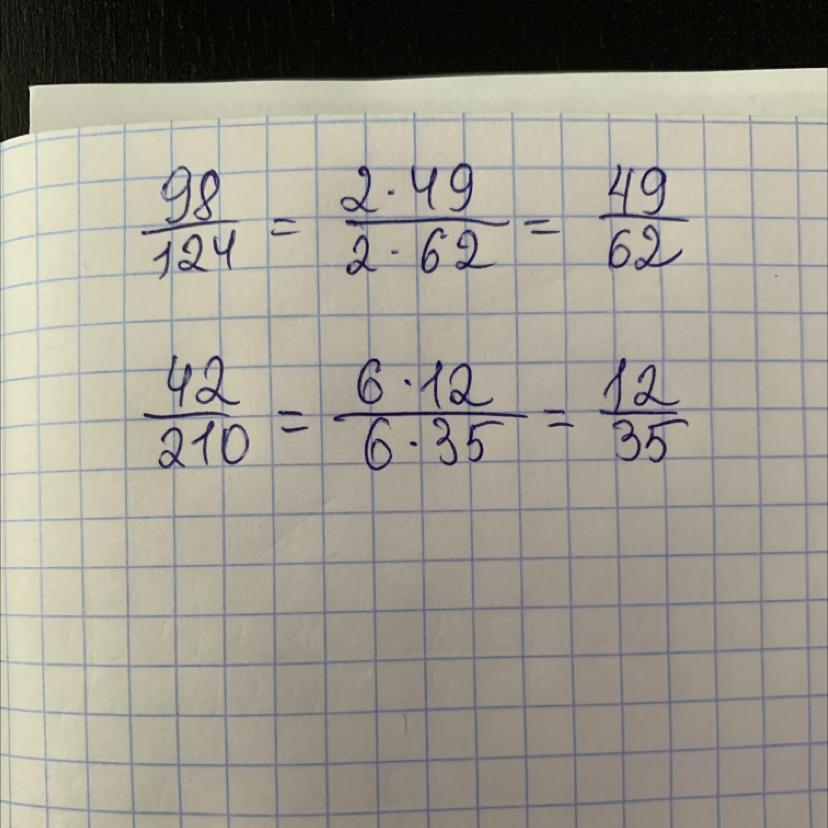 98/124 = 2·49/2·62 = 49/62
42/210 = 6·12/6·35 = 12/35